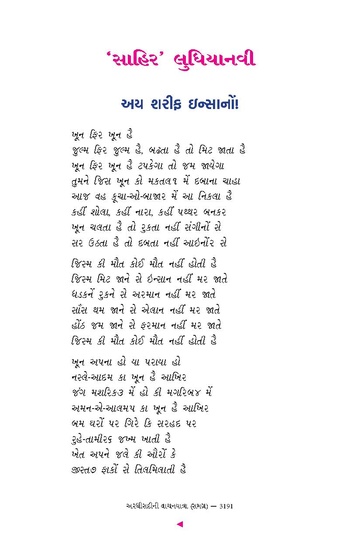 ‘સાહિર’ લુધિયાનવી
અય શરીફ ઇન્સાનોં!
ખૂન ફિર ખૂન હૈ
જુલ્મ ફિર જુલ્મ હૈ, બઢતા હૈ તો મિટ જાતા હૈ
ખૂન ફિર ખૂન હૈ ટપકેગા તો જમ જાયેગા
તુમને જિસ ખૂન કો મકતલ૧ મેં દબાના ચાહા
આજ વહ કૂચા-ઓ-બાજાર મેં આ નિકલા હૈ
કહીં શોલા, કહીં નારા, કહીં પથ્થર બનકર
ખૂન ચલતા હૈ તો રુકતા નહીં સંગીનોં સે
સર ઉઠતા હૈ તો દબતા નહીં આઇનોંર સે
જિસ્મ કી મૌત કોઈ મૌત નહીં હોતી હૈ
જિસ્મ મિટ જાને સે ઇન્સાન નહીં મર જાતે
ધડકનેં રુકને સે અરમાન નહીં મર જાતે
સાઁસ થમ જાને સે એલાન નહીં મર જાતે
હોંઠ જમ જાને સે ફરમાન નહીં મર જાતે
જિસ્મ કી મૌત કોઈ મૌત નહીં હોતી હૈ
ખૂન અપના હો યા પરાયા હો
નસ્લે-આદમ કા ખૂન હૈ આખિર
જંગ મશરિક૩ મેં હો કી મગરિબ૪ મેં
અમન-એ-આલમ૫ કા ખૂન હૈ આખિર
બમ ઘરોં પર ગિરે કિ સરહદ પર
રુહે-તામીર૬ જખ્મ ખાતી હૈ
ખેત અપને જલે કી ઔરોં કે
જીસ્ત૭ ફાકોં સે તિલમિલાતી હૈ
અરધીસદીની વાચનયાત્રા (સમગ્ર) — 3191
◀